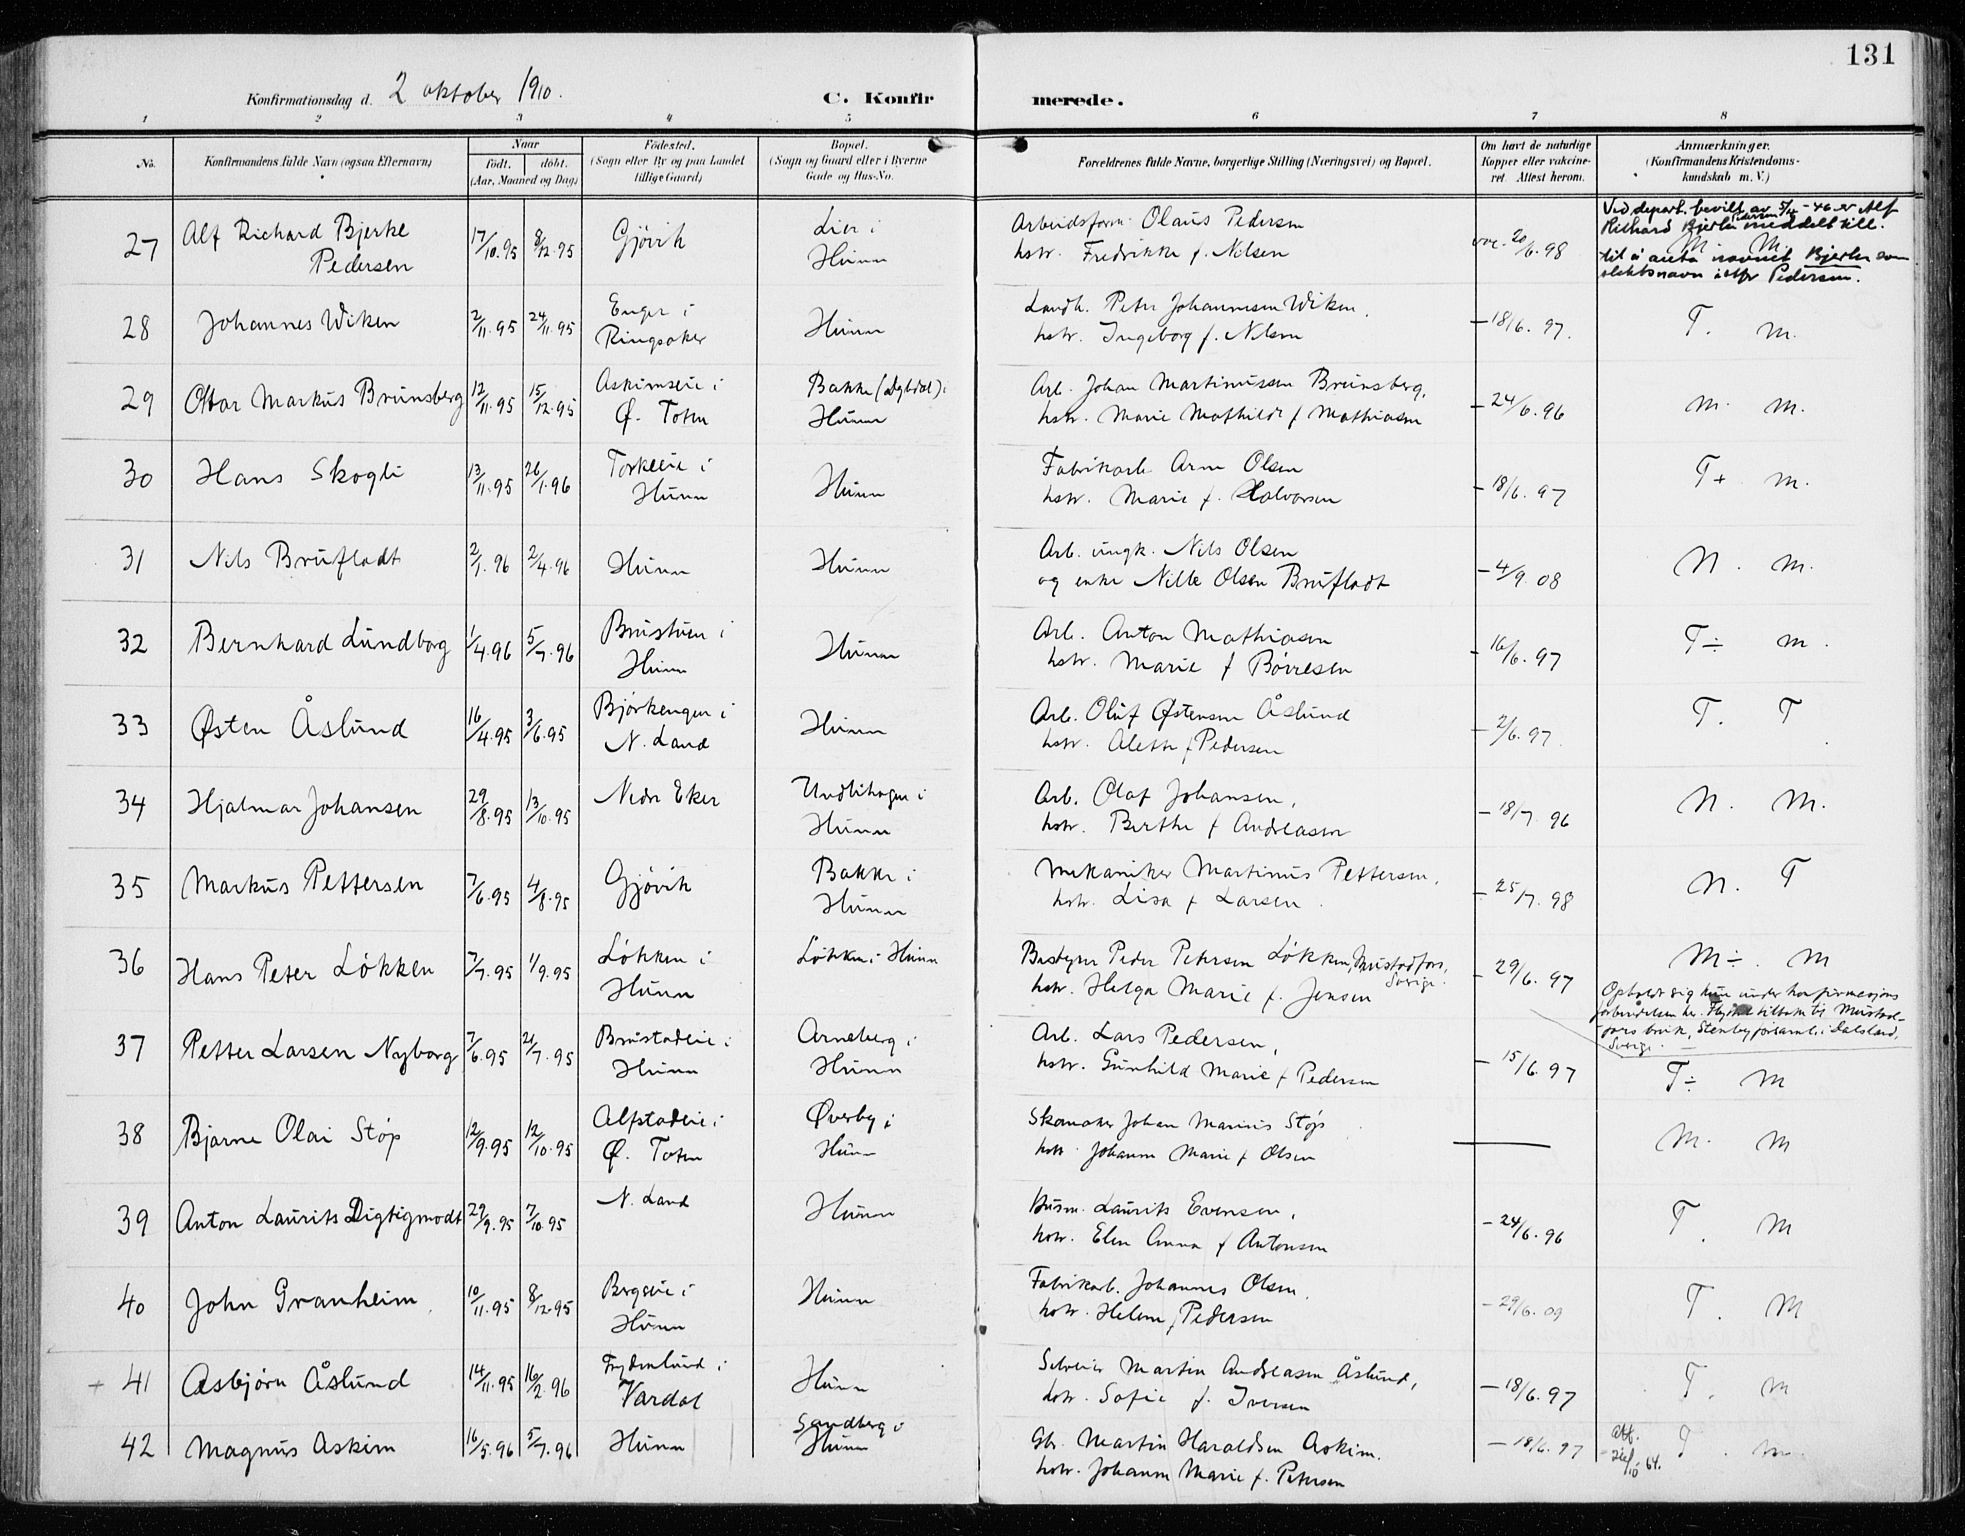 131
Konfirmationsdag d. 2 oktober 1910.
C. Konfir merede.
1 2 3 4 5 6 7 8
No. Konfirmandens fulde Navn (ogsaa Efternavn) Naar født. døbt. (Aar, Maaned og Dag) Fødested. (Sogn eller By og paa Landet tillige Gaard) Bopæl. (Sogn og Gaard eller i Byerne Gade og Hus-No. Forældrenes fulde Navne, borgerlige Stilling (Næringsvei) og Bopæl. Om havt de naturlige Kopper eller vakcineret. Attest herom. Anmærkninger. (Konfirmandens Kristendomskundskab m. V.)
27 Alf Richard Bjerke 17/10.95 8/12.95 Gjøvik Lier i Arbeidsform. Olaus Pedersen vac. 20/6.98 Ved depart. bevilt. av 5/12-46 er Alf
Pedersen Hunn hstr. Fredrikke f. Nilsen Richard Bjerke Pedersen meddelt till.
M. M.
til å anta navnet Bjerke som
slektsnavn istfr Pedersen.
28 Johannes Wiken 2/11.95 24/11.95 Enger i Hunn Landh. Peter Johannesen Wiken, – 18/6.97. T. M.
Ringsaker hstr. Ingeborg f. Nilsen
29 Ottar Markus Brunsberg 12/11.95 15/12.95 Askimseie i Bakke (Dybdal) i Arb. Johan Martinussen Brunsberg, – 24/6.96 M. M.
Ø. Toten Hunn hstr. Marie Mathilde f Mathiasen
30 Hans Skogli 13/11.95 26/1.96 Torkeeie i Hunn Fabrikarb. Arne Olsen – 18/6.97 T+ M.
Hunn hstr. Marie f. Halvorsen
31 Nils Brufladt 2/1.96 2/4.96 Hunn Hunn Arb. ungk. Nils Olsen – 4/9.08 N. M.
og enke Nille Olsen Brufladt
32 Bernhard Lundborg 1/4.96 5/7.96 Brustuen i Hunn Arb. Anton Mathiasen – 16/6.97 T÷ M.
Hunn hstr. Marie f Børresen
33 Østen Åslund 16/4.95 3/6.95 Bjørkengen i Hunn Arb. Oluf Østensen Åslund – 2/6.97. T. T
N. Land hstr. Alette f Pedersen
34 Hjalmar Johansen 29/8.95 13/10.95 Nedre Eker Undlihagen i Arb. Olaf Johansen, – 18/7.96 N. M.
Hunn hstr. Berthe f Andreasen
35 Markus Pettersen 7/6.95 4/8.95 Gjøvik Bakke i Mekaniker Martinus Pettersen, – 25/7.98 N. T
Hunn hstr. Lisa f Larsen
36 Hans Peter Løkken 7/7.95 1/9.95 Løkken i Løkken i Hunn Bestyrer Peder Petersen Løkken, Mustadfors, – 29/6.97 M÷. M
Hunn hstr. Helga Marie f. Jensen Sverige. Opholdt sig kun under konfirmasjons
forberedelsen her. Flyttet tilbake til Mustad-
fors bruk, Stenby församl. i Dalsland,
Sverige.
37 Petter Larsen Nyborg 7/6.95 21/7.95 Brustadeie i Arneberg i Arb. Lars Pedersen, – 15/6.97 T÷ M
Hunn Hunn hstr. Gunhild Marie f Pedersen
38 Bjarne Olai Støp 12/9.95 12/10.95 Alfstadeie i Øverby i Skomaker Johan Marinus Støp — M. M
Ø. Toten Hunn hstr. Johanne Marie f Olsen
39 Anton Laurits Digtigmodt 29/9.95 7/10.95 N. Land Hunn Husm. Laurits Evensen, – 24/6.96 T. M
hstr. Elen Anna f Antonsen
40 John Granheim 10/11.95 8/12.95 Bergeie i Hunn Fabrikarb. Johannes Olsen, – 29/6.09 T. M
Hunn hstr. Helene f Pedersen
+ 41 Asbjørn Åslund 14/11.95 16/2.96 Frydenlund i Hunn Selveier Martin Andreasen Åslund, – 18/6.97 T. M
Vardal hstr. Sofie f. Iversen
42 Magnus Askim 16/5.96 5/7.96 Hunn Sandberg i Gbr. Martin Haraldsen Askim. – 18/6.97 att. T. M.
Hunn hstr. Johanne Marie f. Petersen 64.